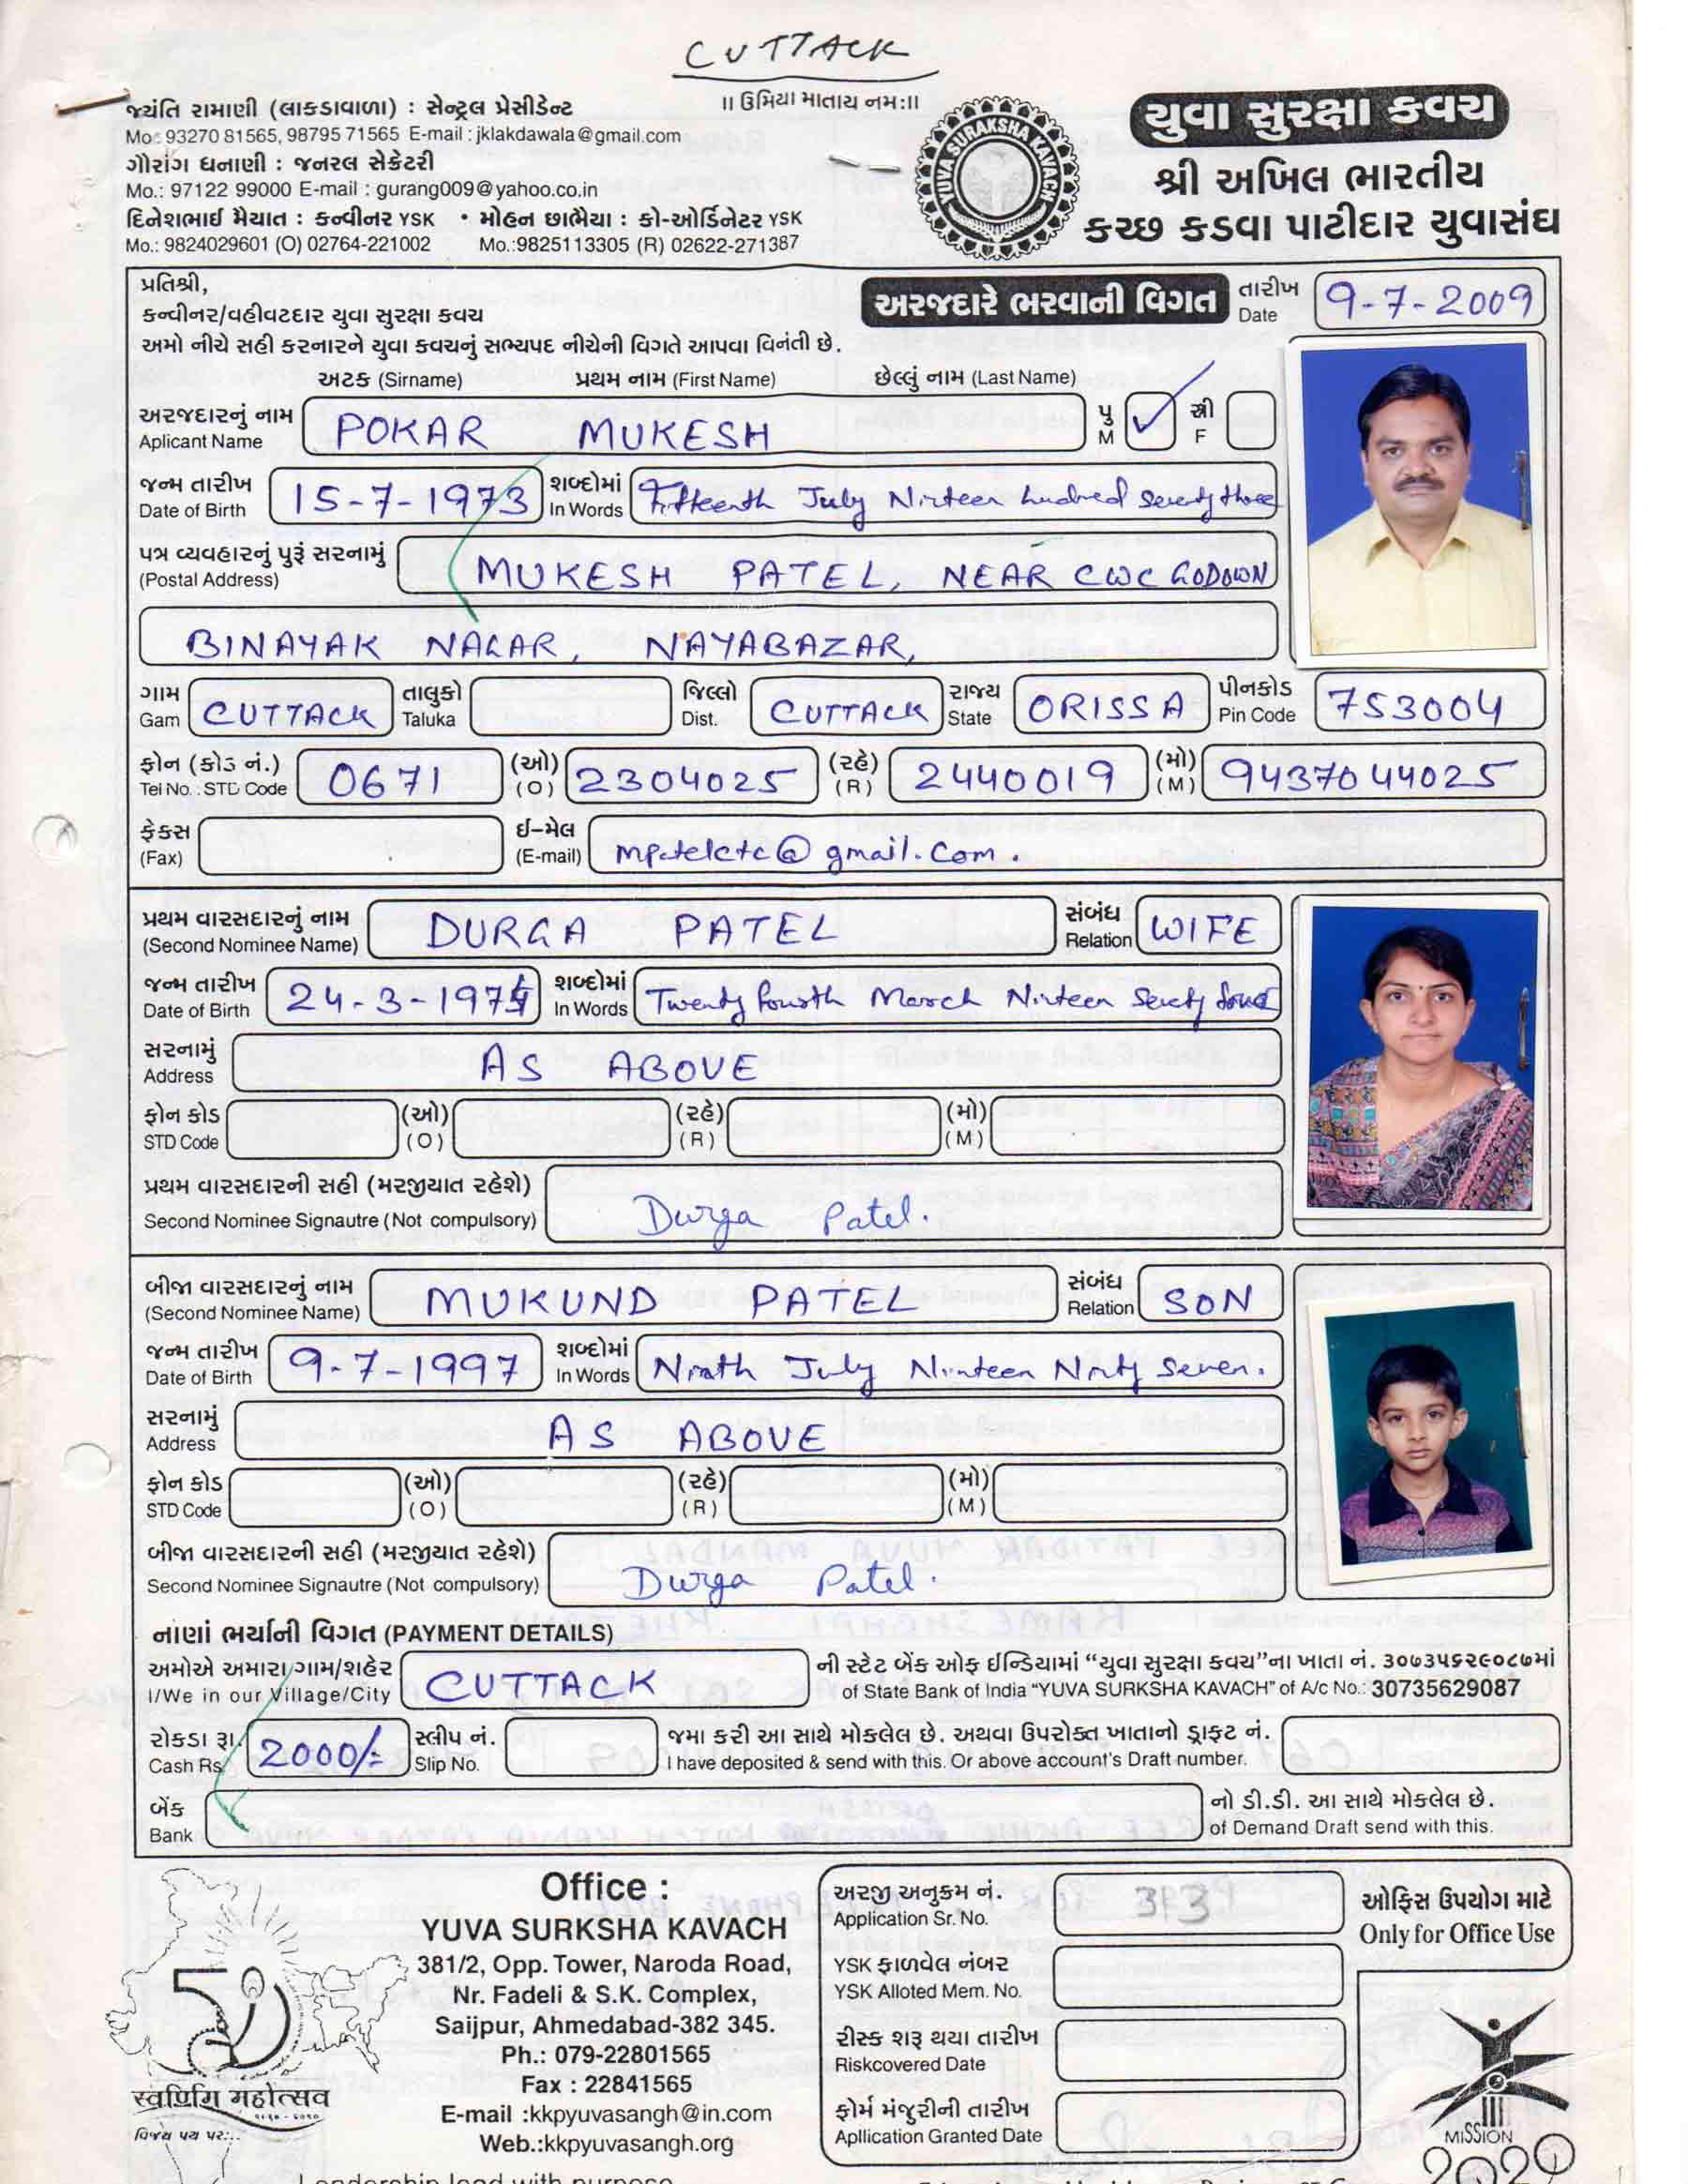 CUTTACK
જયંતિ રામાણી (લાકડાવાળા) : સેન્ટ્રલ પ્રેસીડેન્ટ
Mo: 93270 81565, 98795 71565 E-mail : jklakdawala@gmail.com
ગૌરાંગ ધનાણી : જનરલ સેક્રેટરી
Mo.: 97122 99000 E-mail : gurang009@yahoo.co.in
દિનેશભાઈ મૈયાત : કન્વીનર YSK • મોહન છાભૈયા : કો-ઓર્ડિનેટર YSK
Mo.: 9824029601 (O) 02764-221002 Mo.:9825113305 (R) 02622-271387
॥ ઉમિયા માતાય નમઃ॥
YUVA SURAKSHA KAVACH
યુવા સુરક્ષા કવચ
શ્રી અખિલ ભારતીય
કચ્છ કડવા પાટીદાર યુવાસંઘ
પ્રતિશ્રી,
કન્વીનર/વહીવટદાર યુવા સુરક્ષા કવચ
અમો નીચે સહી કરનારને યુવા કવચનું સભ્યપદ નીચેની વિગતે આપવા વિનંતી છે.
અરજદારે ભરવાની વિગત
તારીખ
Date 9-7-2009
અટક (Sirname) પ્રથમ નામ (First Name) છેલ્લું નામ (Last Name)
અરજદારનું નામ પુ સ્ત્રી
Aplicant Name POKAR MUKESH M ✓ F
જન્મ તારીખ શબ્દોમાં
Date of Birth 15-7-1973 In Words Fifteenth July Ninteen hudred Seventy three
પત્ર વ્યવહારનું પુરૂં સરનામું
(Postal Address) MUKESH PATEL, NEAR CWC GODOWN
BINAYAK NAGAR, NAYABAZAR,
ગામ તાલુકો જિલ્લો રાજ્ય પીનકોડ
Gam CUTTACK Taluka Dist. CUTTACK State ORISSA Pin Code 753004
ફોન (કોડ નં.) (ઓ) (રહે) (મો)
Tel No. : STD Code 0671 (O) 2304025 (R) 2440019 (M) 9437044025
ફેક્સ ઈ-મેલ
(Fax) (E-mail) mpatelctc@gmail.com.
પ્રથમ વારસદારનું નામ સંબંધ
(Second Nominee Name) DURGA PATEL Relation WIFE
જન્મ તારીખ શબ્દોમાં
Date of Birth 24-3-1974 In Words Twenty fourth March Ninteen Seventy four
સરનામું
Address AS ABOVE
ફોન કોડ (ઓ) (રહે) (મો)
STD Code (O) (R) (M)
પ્રથમ વારસદારની સહી (મરજીયાત રહેશે)
Second Nominee Signautre (Not compulsory) Durga Patel.
બીજા વારસદારનું નામ સંબંધ
(Second Nominee Name) MUKUND PATEL Relation SON
જન્મ તારીખ શબ્દોમાં
Date of Birth 9-7-1997 In Words Ninth July Ninteen Ninty Seven.
સરનામું
Address AS ABOVE
ફોન કોડ (ઓ) (રહે) (મો)
STD Code (O) (R) (M)
બીજા વારસદારની સહી (મરજીયાત રહેશે)
Second Nominee Signautre (Not compulsory) Durga Patel.
નાણાં ભર્યાની વિગત (PAYMENT DETAILS)
અમોએ અમારા ગામ/શહેર ની સ્ટેટ બેંક ઓફ ઈન્ડિયામાં “યુવા સુરક્ષા કવચ”ના ખાતા નં. ૩૦૭૩૫૬૨૯૦૮૭માં
I/We in our Village/City CUTTACK of State Bank of India “YUVA SURKSHA KAVACH” of A/c No.: 30735629087
રોકડા રૂા. સ્લીપ નં. જમા કરી આ સાથે મોકલેલ છે. અથવા ઉપરોક્ત ખાતાનો ડ્રાફ્ટ નં.
Cash Rs. 2000/- Slip No. I have deposited & send with this. Or above account's Draft number.
બેંક નો ડી.ડી. આ સાથે મોકલેલ છે.
Bank of Demand Draft send with this.
स्वर्णिम महोत्सव
વિજય પથ પર...
Office :
YUVA SURKSHA KAVACH
381/2, Opp. Tower, Naroda Road,
Nr. Fadeli & S.K. Complex,
Saijpur, Ahmedabad-382 345.
Ph.: 079-22801565
Fax : 22841565
E-mail :kkpyuvasangh@in.com
Web.:kkpyuvasangh.org
અરજી અનુક્રમ નં.
Application Sr. No. 3131
YSK ફાળવેલ નંબર
YSK Alloted Mem. No.
રીસ્ક શરૂ થયા તારીખ
Riskcovered Date
ફોર્મ મંજુરીની તારીખ
Apllication Granted Date
ઓફિસ ઉપયોગ માટે
Only for Office Use
MISSION
2020
Leadership lead with purpose